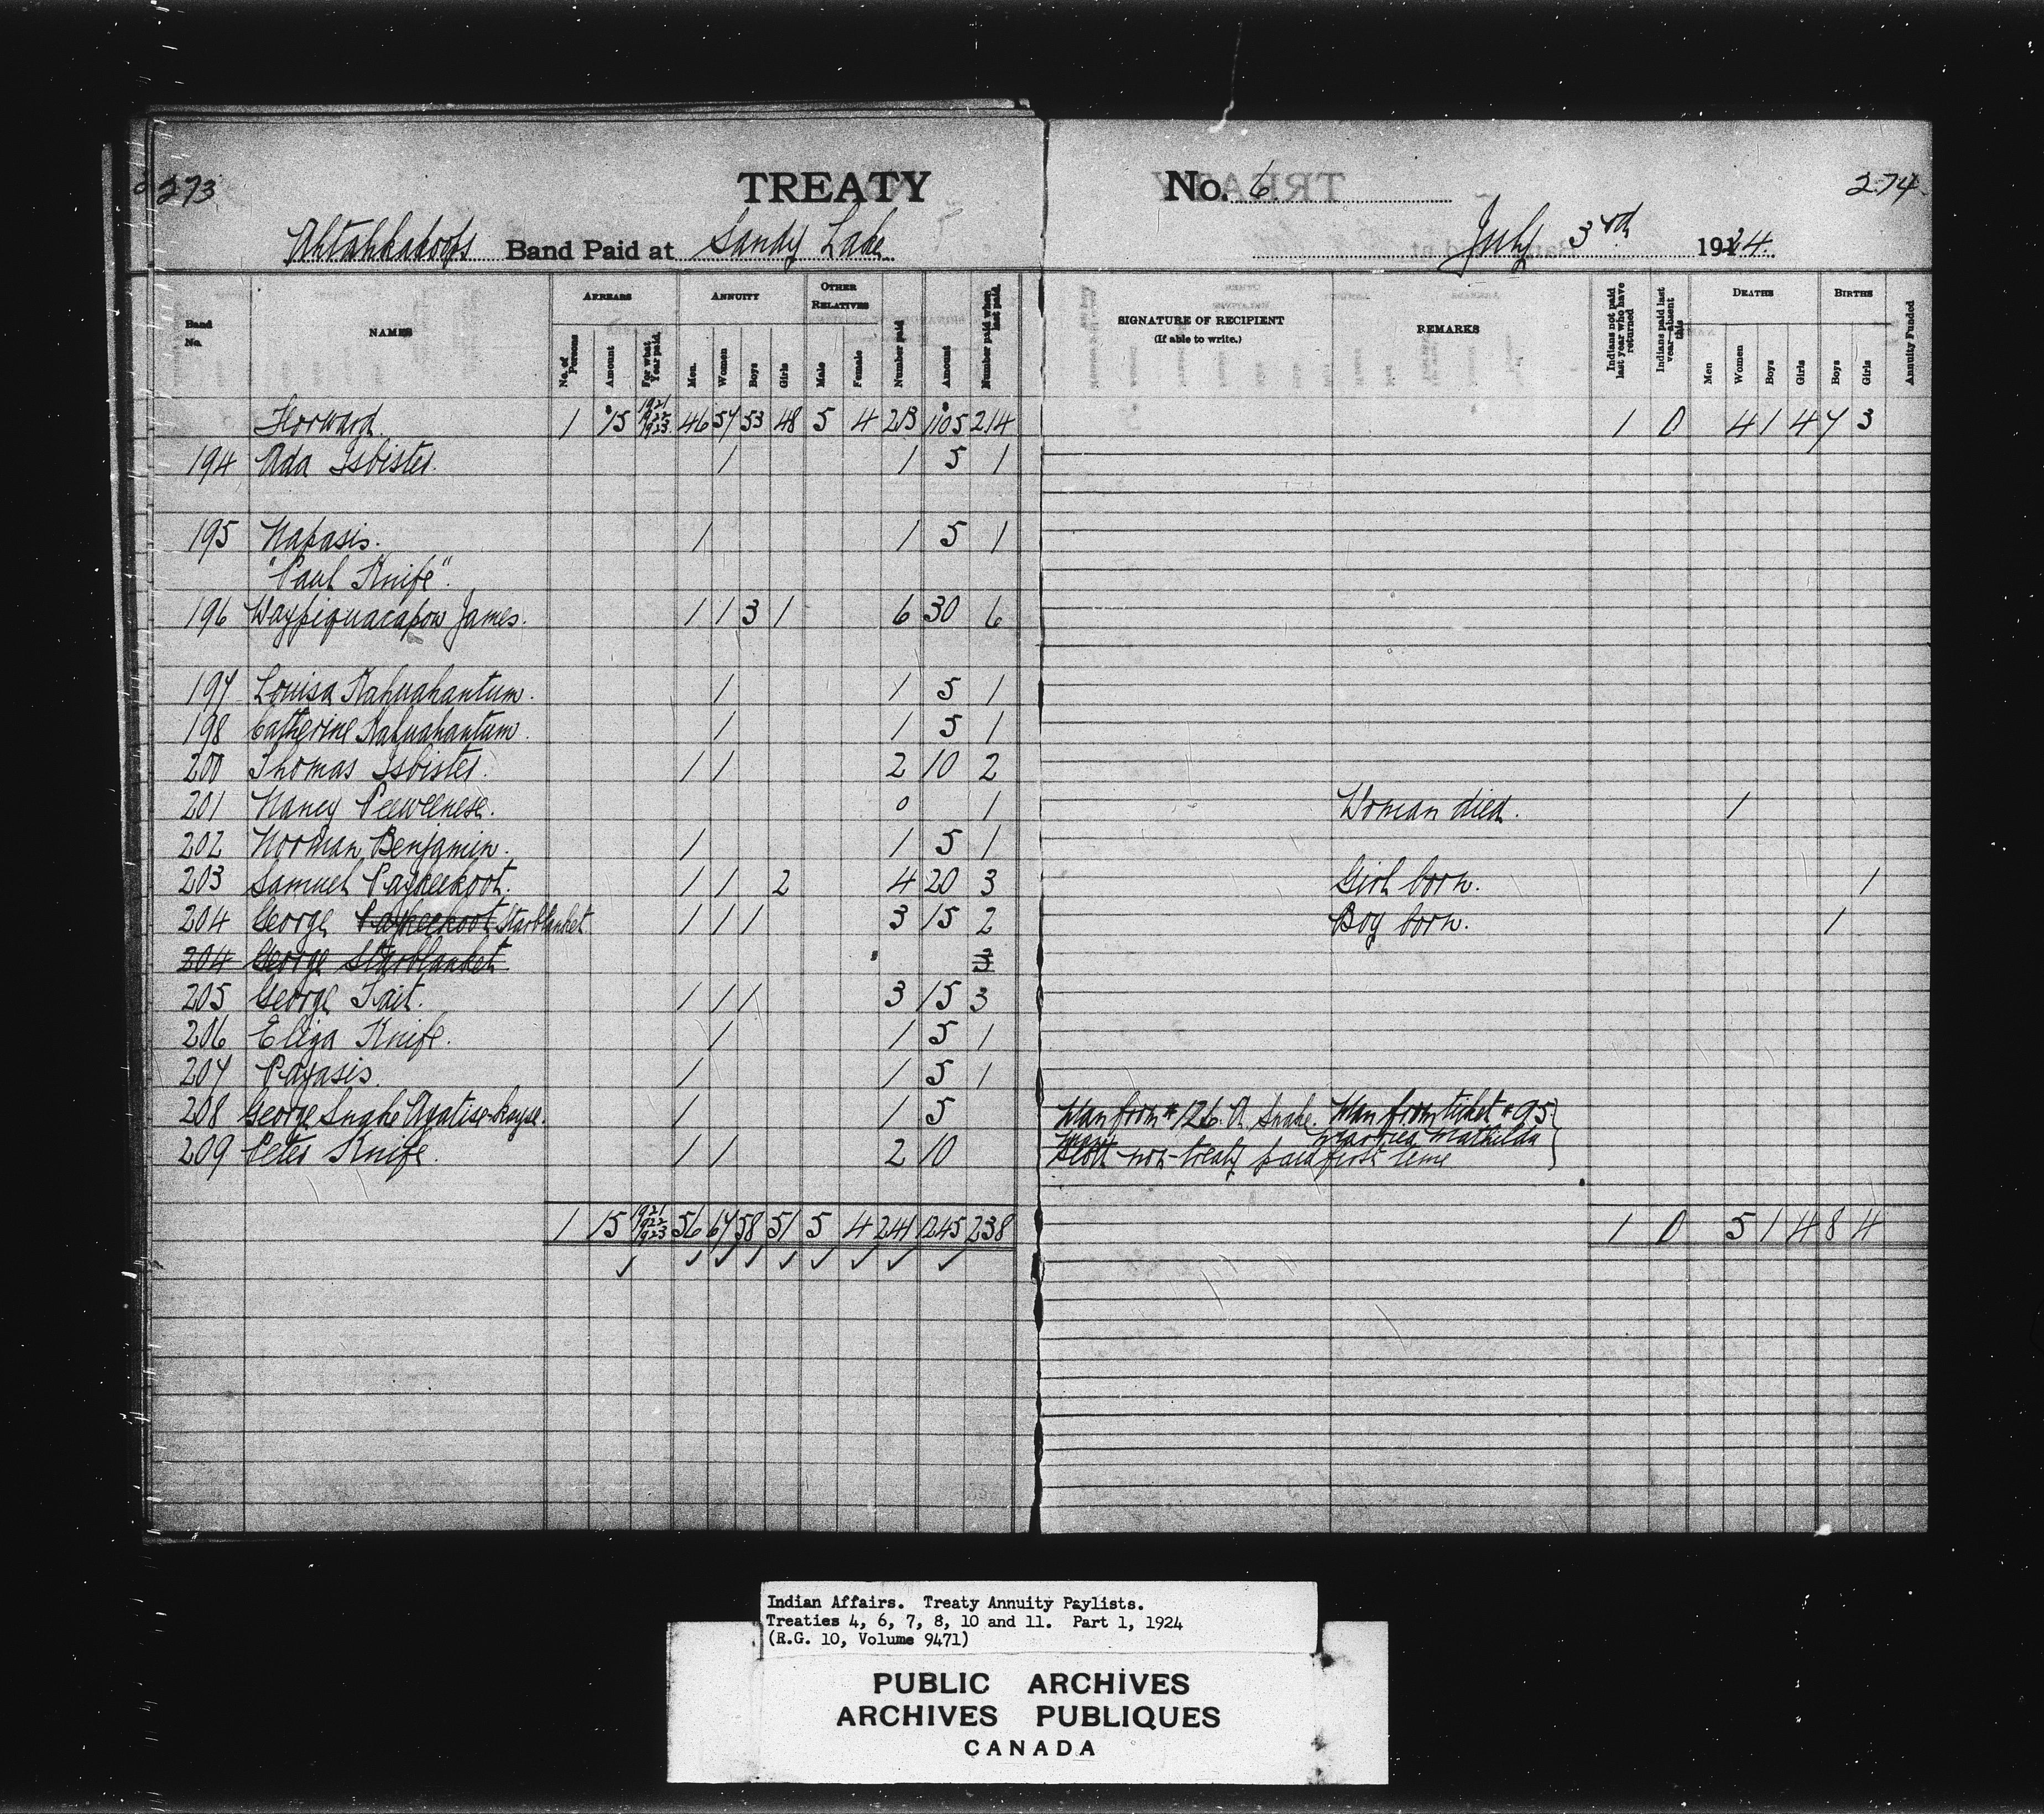 273 TREATY No. 6 274
Ahtahkakoops Band Paid at Sandy Lake July 3rd 1924.
Band No.
NAMES
ARREARS
No. of Persons
Amount
For what Year paid.
ANNUITY
Men.
Women
Boys
Girls
OTHER RELATIVES
Male
Female
Number paid
Amount
Number paid when last paid.
SIGNATURE OF RECIPIENT
(If able to write.)
REMARKS
Indians not paid last year who have returned
Indians paid last year—absent this
DEATHS
Men
Women
Boys
Girls
BIRTHS
Boys
Girls
Annuity Funded
Forward. 1 15 1921 1922 1923 46 57 53 48 5 4 213 1105 214 1 0 4 1 4 7 3
194 Ada Isbister. 1 1 5 1
195 Napasis. 1 1 5 1
"Paul Knife".
196 Waypiquacapow James. 1 1 3 1 6 30 6
197 Louisa Kahuahantum. 1 1 5 1
198 Catherine Kahuahantum. 1 1 5 1
200 Thomas Isbister. 1 1 2 10 2
201 Nancy Peeweenese. 0 1 Woman died. 1
202 Norman Benjamin. 1 1 5 1
203 Samuel Paykeekoot. 1 1 2 4 20 3 Girl born. 1
204 George Paykeekoot Starblanket 1 1 1 3 15 2 Boy born. 1
204 George Starblanket
205 George Tait. 1 1 1 3 15 3
206 Eliza Knife. 1 1 5 1
207 Payasis. 1 1 5 1
208 George Snake Ayatise-kayse. 1 1 5 Man from #126. A. Snake. Man from ticket #95
209 Peter Knife. 1 1 2 10 married Mathilda
Scott non-treaty paid first time
1 15 1921 1922 1923 56 67 58 51 5 4 241 1245 238 1 0 5 1 4 8 4
Indian Affairs. Treaty Annuity Paylists.
Treaties 4, 6, 7, 8, 10 and 11. Part 1, 1924
(R.G. 10, Volume 9471)
PUBLIC ARCHIVES
ARCHIVES PUBLIQUES
CANADA